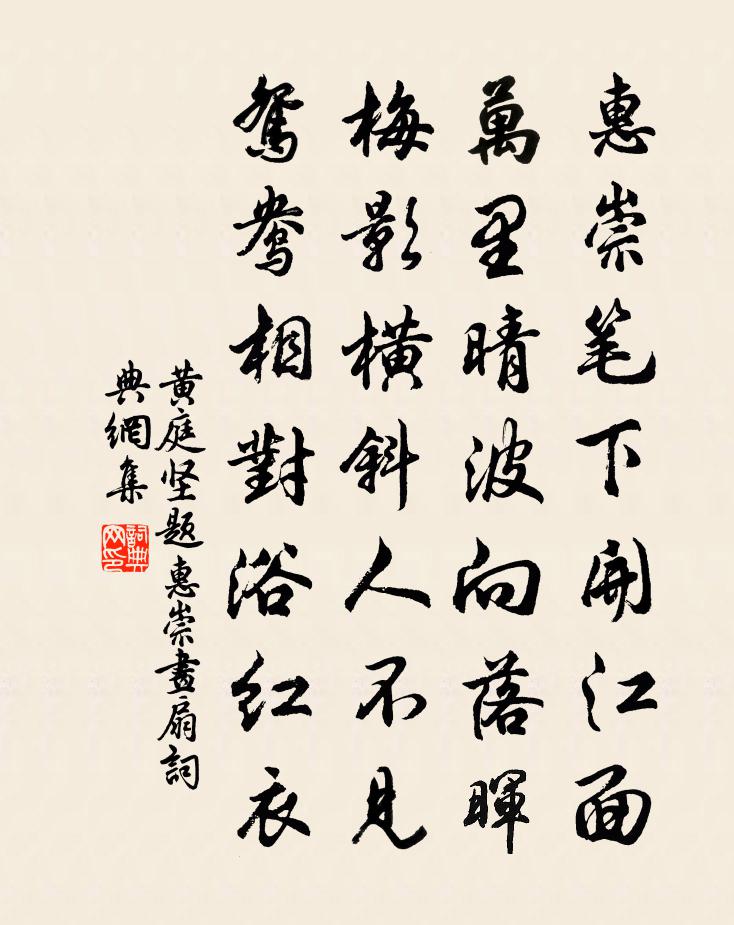 惠崇笔下開江面
萬里晴波向落暉
梅影横斜人不見
鴛鴦相對浴红衣
黄庭坚题惠崇畫扇詞
典網集
詞典网印